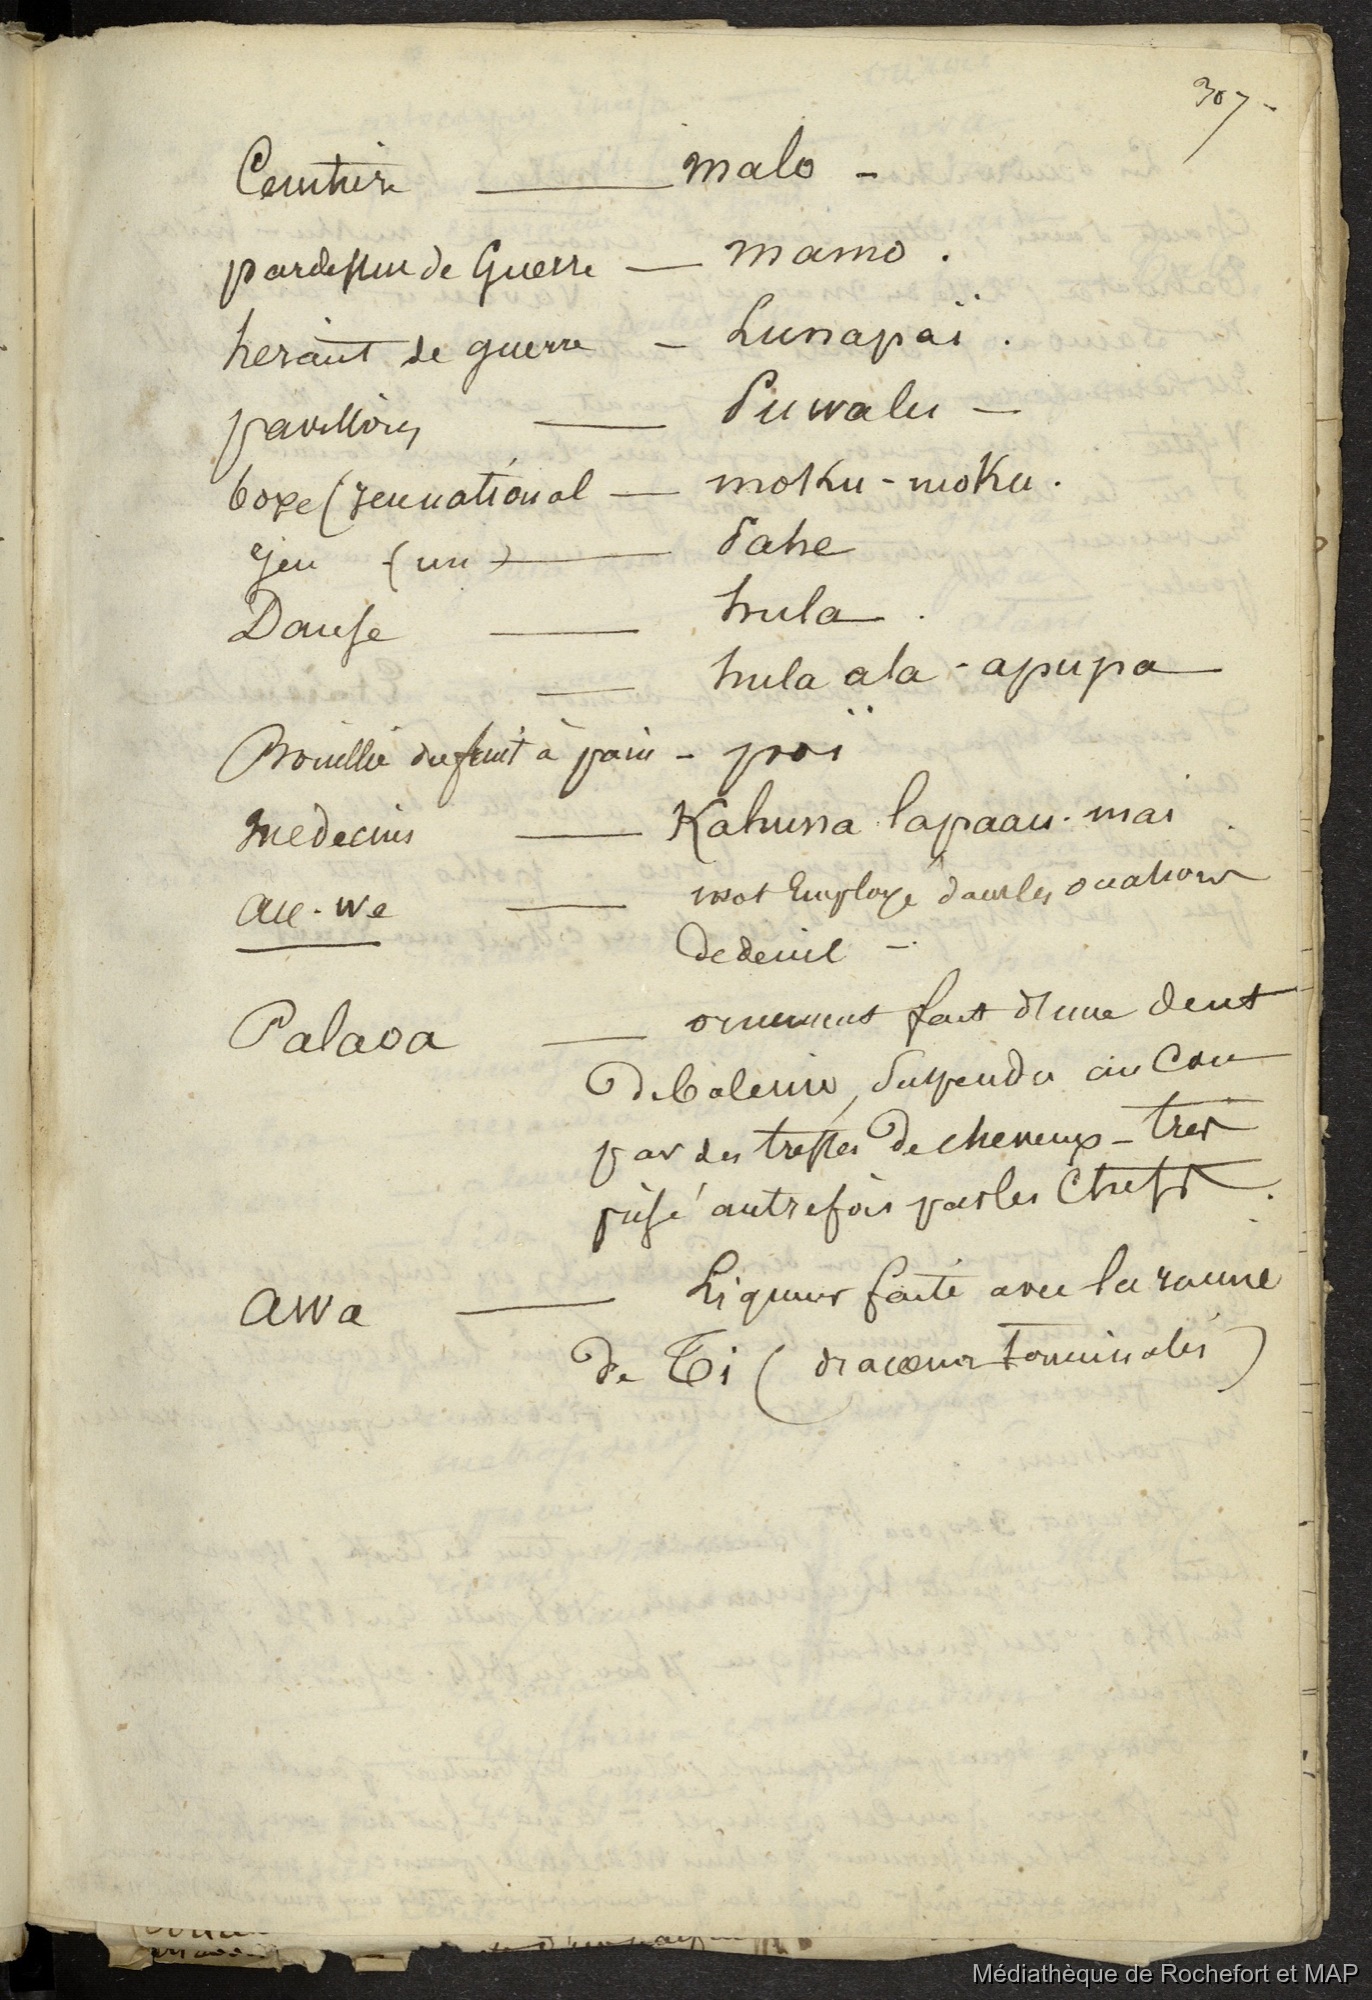 307 -
Ceinture — malo -
pardessus de Guerre — mamo .
heraut de guerre - Lunapaï .
pavillons — Puwalu —
boxe (jeu national — moku-moku .
jeu (un) — Pahe
Danse — hula .
— hula ala-apupa
Bouillie du fruit à pain - poï
medecins — Kahuna lapaau. mai
aue-we — mot Employé dans les
de deuil -
Palaoa — ornement fait d'une dent
De baleine, suspendu au Cou
par des tresses De cheveux - tres
prisé autrefois par les Chefs .
awa — Liqueur faite avec la racine
De Ti ( dracoena terminalis )
Médiathèque de Rochefort et MAP